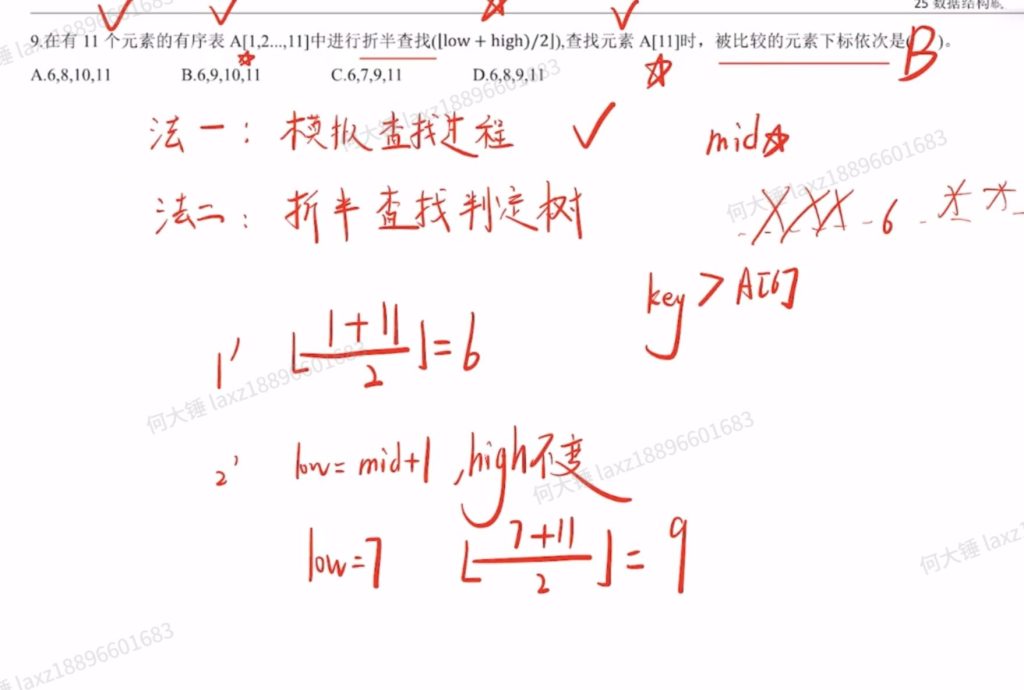 25 数据结构
9.在有 11 个元素的有序表 A[1,2...,11]中进行折半查找(⌊low + high)/2⌋),查找元素 A[11]时，被比较的元素下标依次是( B )。
A.6,8,10,11 B.6,9,10,11 C.6,7,9,11 D.6,8,9,11
法一: 模拟查找过程 ✓ mid☆
法二: 折半查找判定树
6
key > A[6]
1' ⌊(1+11)/2⌋=6
2' low=mid+1,high不变
low=7 ⌊(7+11)/2⌋=9
何大锤 laxz18896601683
何大锤 laxz18896601683
何大锤 laxz18896601683
何大锤 laxz
laxz18896601683